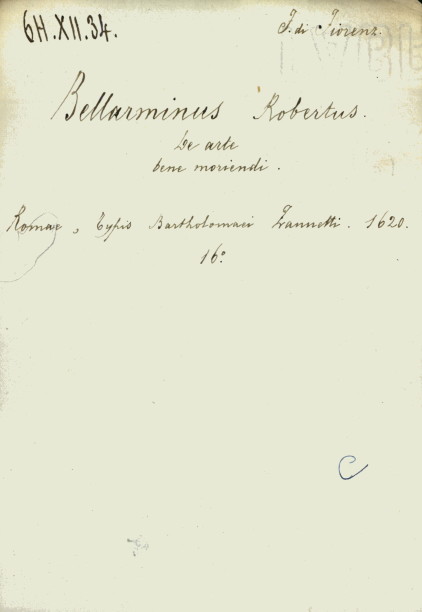 6H.XII.34.
F. di Fiorenz.
Bellarminus Robertus.
De arte
bene moriendi.
Romae, Typis Bartholomaei Zannetti. 1620.
16º
C